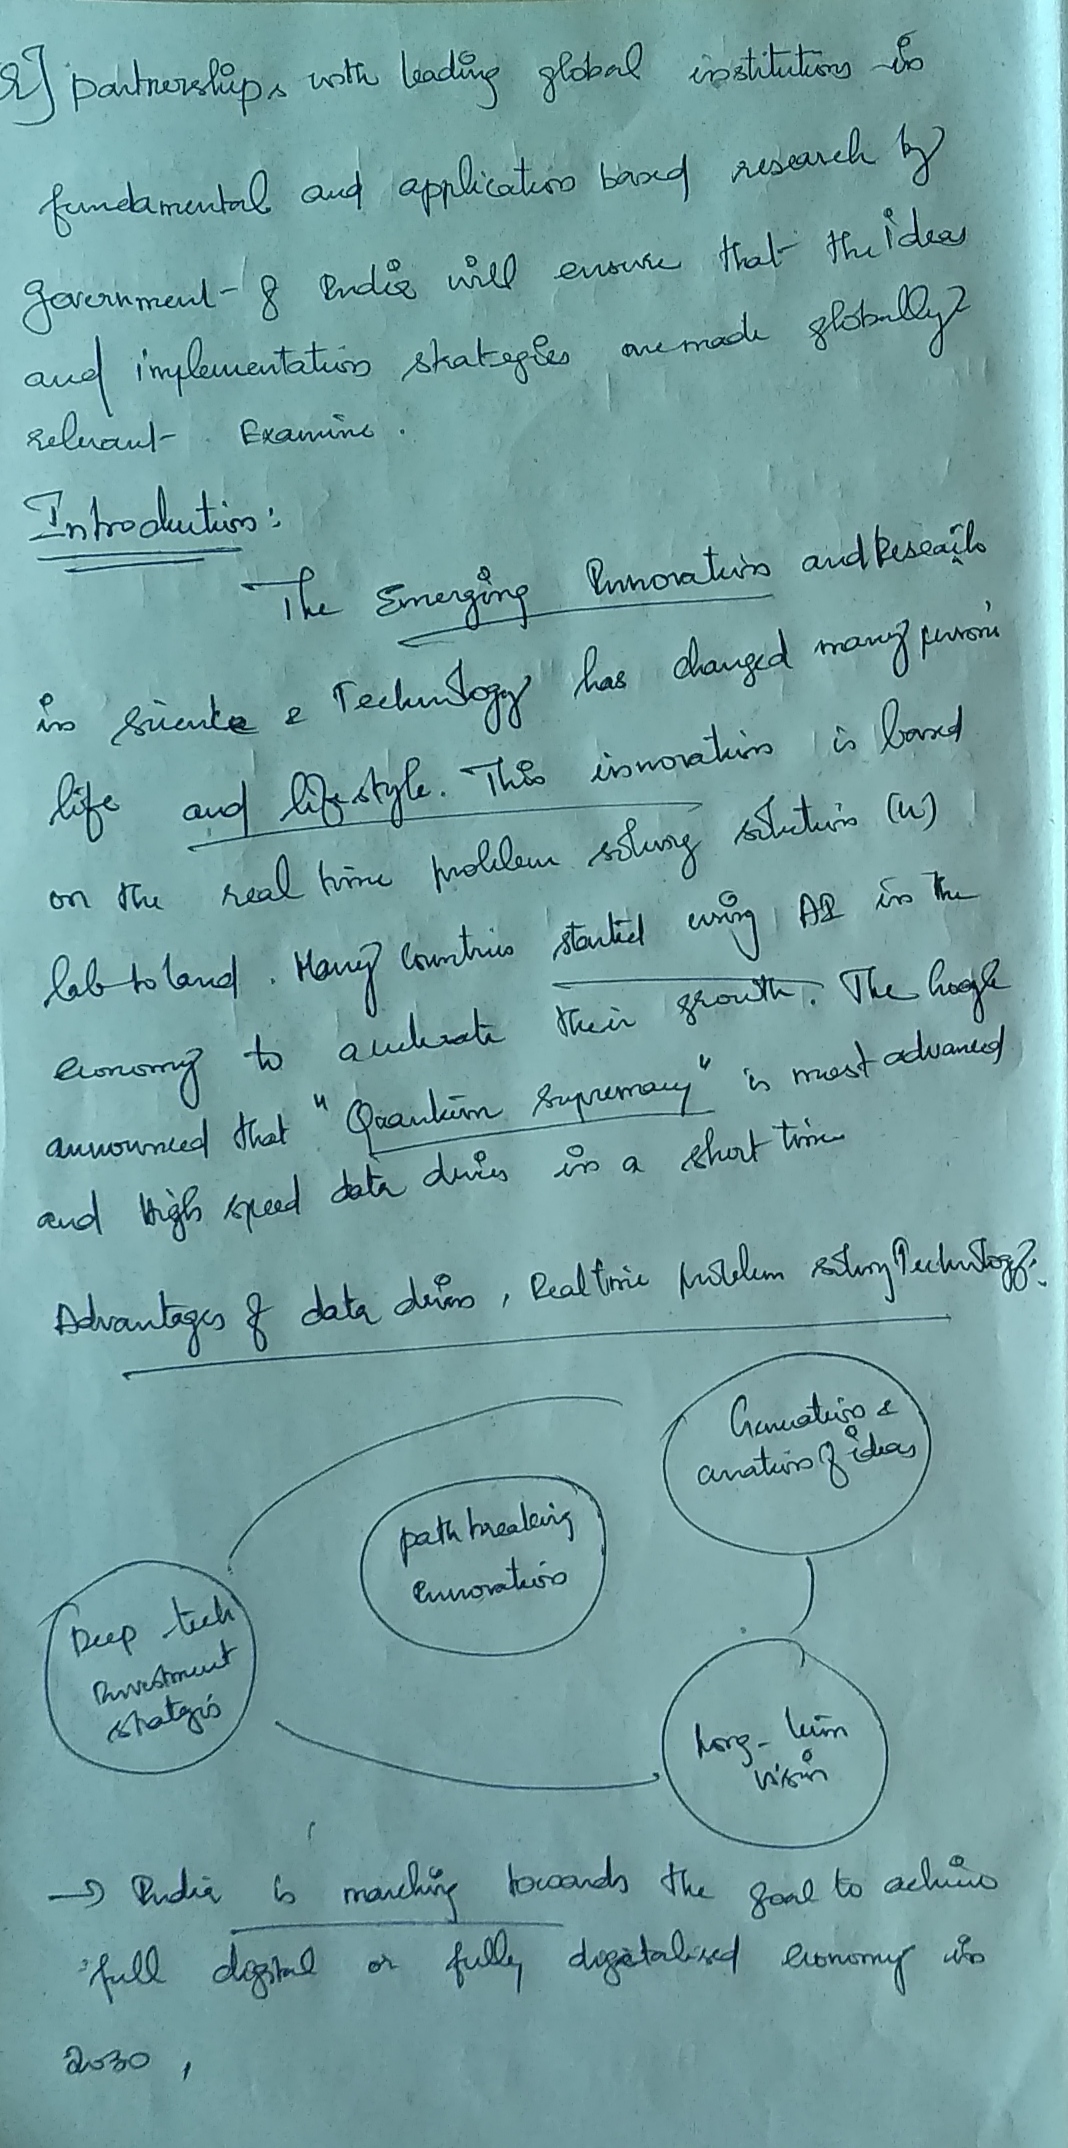 2] partnerships with leading global institutions in
fundamental and application based research by
government of India will ensure that the ideas
and implementation strategies are made globally
relevant. Examine.
Introduction:
The Emerging Innovation and Research
in science & Technology has changed many person's
life and lifestyle. This innovation is based
on the real time problem solving solution (w)
lab to land. Many countries started using AI in the
economy to accelerate their growth. The Google
announced that "Quantum Supremacy" is most advanced
and High speed data drives in a short time
Advantages of data drives, Real time problem solving Technology:
Generation &
creation of ideas
path breaking
innovation
Deep-tech
investment
strategies
Long-term
vision
→ India is marching towards the goal to achieve
full digital or fully digitalised economy in
2030,